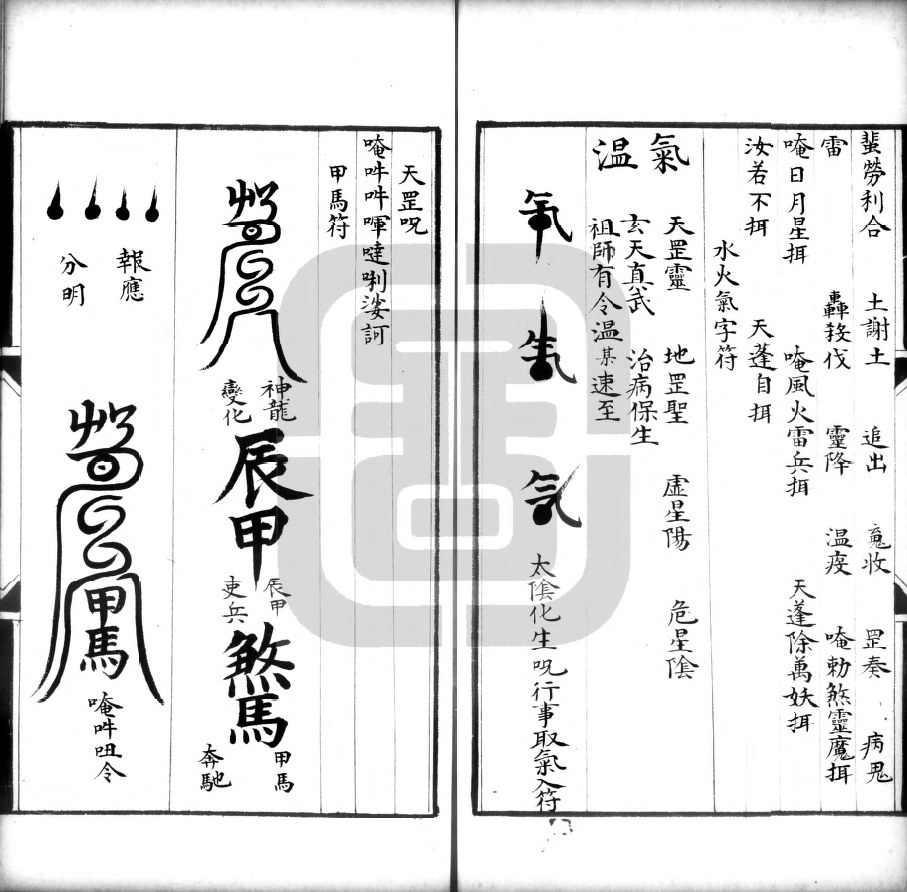 蜚勞利合 土謝土 追出 䰡收 罡奏 病鬼
雷 轟𢦶伐 靈降 温疫 唵勅煞靈魔揖
唵日月星揖 唵風火雷兵揖 天蓬除萬妖揖
汝若不揖 天蓬自揖
水火氣字符
氣 天罡靈 地罡聖 虛星陽 危星陰
玄天真武 治病保生
温 祖師有令温某速至
太陰化生呪行事取氣入符
天罡呪
唵吽吽㖶噠唎娑訶
甲馬符
神龍
變化
辰甲
辰甲
吏兵
煞馬
甲馬
奔馳
報應
分明
甲馬
唵吽呾令